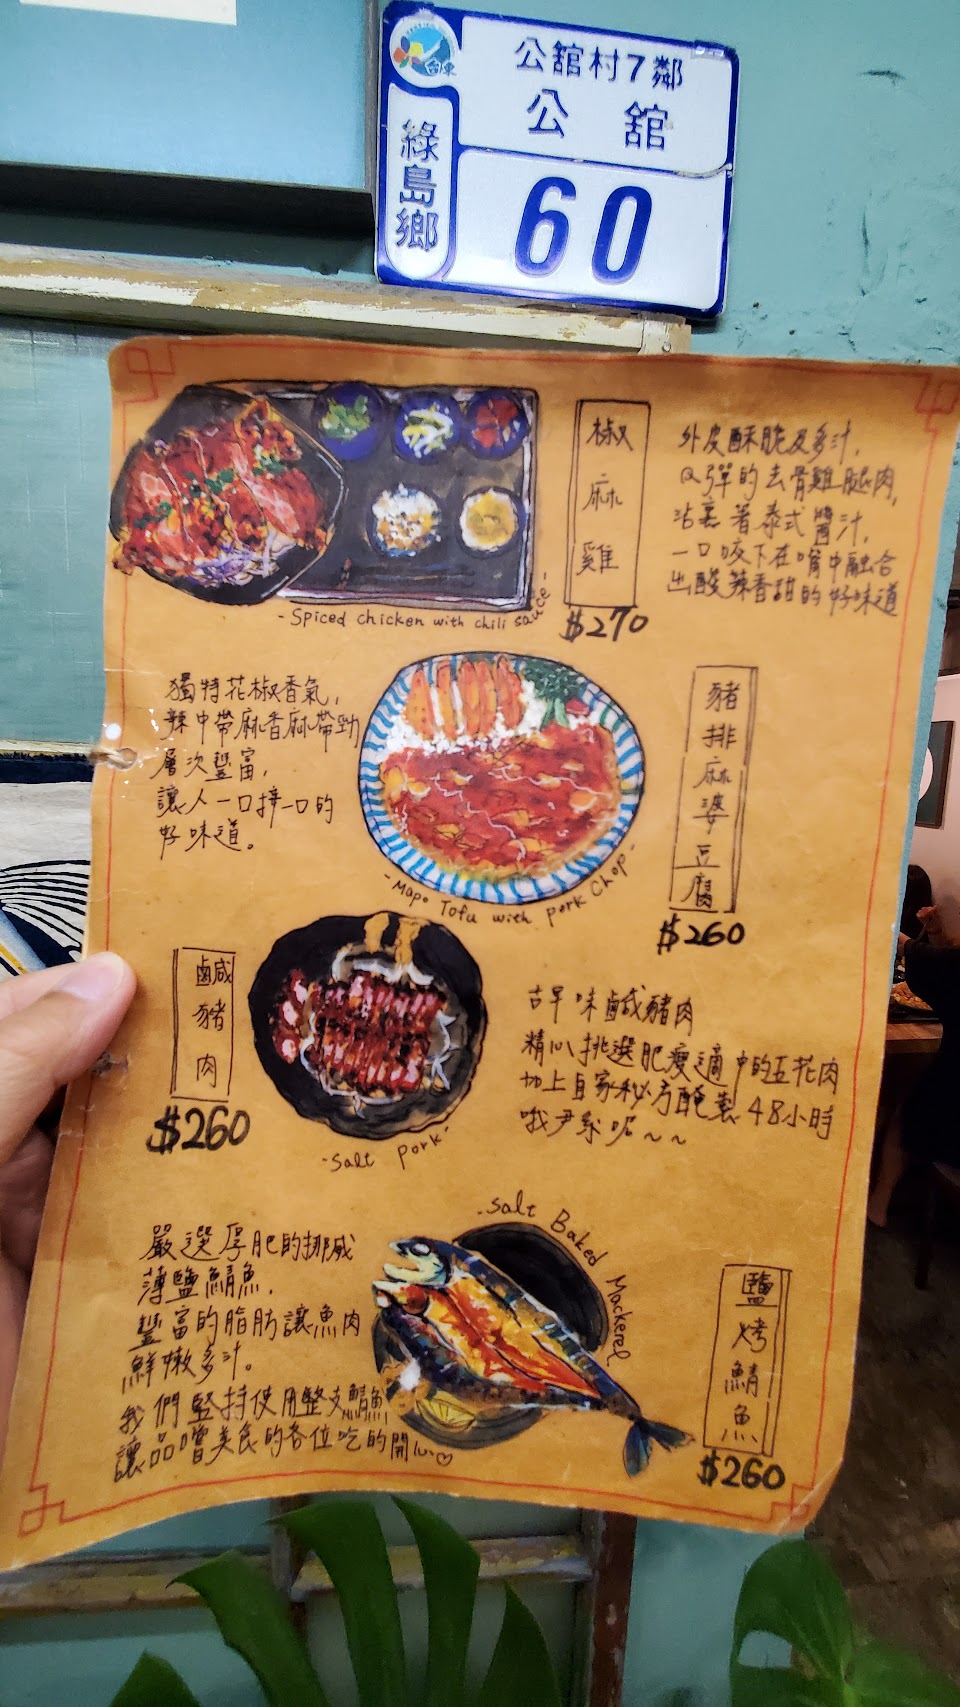 台東
公舘村7鄰
公舘
綠島鄉
60
椒麻雞
$270
外皮酥脆及多汁,
Q彈的去骨雞腿肉,
沾裹著泰式醬汁,
一口咬下在嘴中融合
出酸辣香甜的好味道
-Spiced chicken with chili sauce-
獨特花椒香氣,
辣中帶麻香麻帶勁
層次豐富,
讓人一口接一口的
好味道。
-Mapo Tofu with pork chop-
豬排麻婆豆腐
$260
鹹豬肉
$260
-salt pork-
古早味鹹豬肉
精心挑選肥瘦適中的五花肉
加上自家秘方醃製48小時
哦尹系呢~~
嚴選厚肥的挪威
薄鹽鯖魚,
豐富的脂肪讓魚肉
鮮嫩多汁。
我們堅持使用整支鯖魚
讓品嚐美食的各位吃的開心♡
-salt Baked Mackerel
鹽烤鯖魚
$260